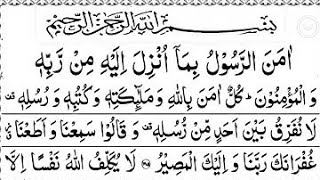 بِسْمِ اللهِ الرَّحْمٰنِ الرَّحِيْمِ
اٰمَنَ الرَّسُوْلُ بِمَاۤ اُنْزِلَ اِلَيْهِ مِنْ رَّبِّهٖ
وَ الْمُؤْمِنُوْنَؕ كُلٌّ اٰمَنَ بِاللهِ وَ مَلٰٓىِٕكَتِهٖ وَ كُتُبِهٖ وَ رُسُلِهٖ۫
لَا نُفَرِّقُ بَيْنَ اَحَدٍ مِّنْ رُّسُلِهٖ۫ وَ قَالُوْا سَمِعْنَا وَ اَطَعْنَا
غُفْرَانَكَ رَبَّنَا وَ اِلَيْكَ الْمَصِيْرُ لَا يُكَلِّفُ اللهُ نَفْسًا اِلَّا